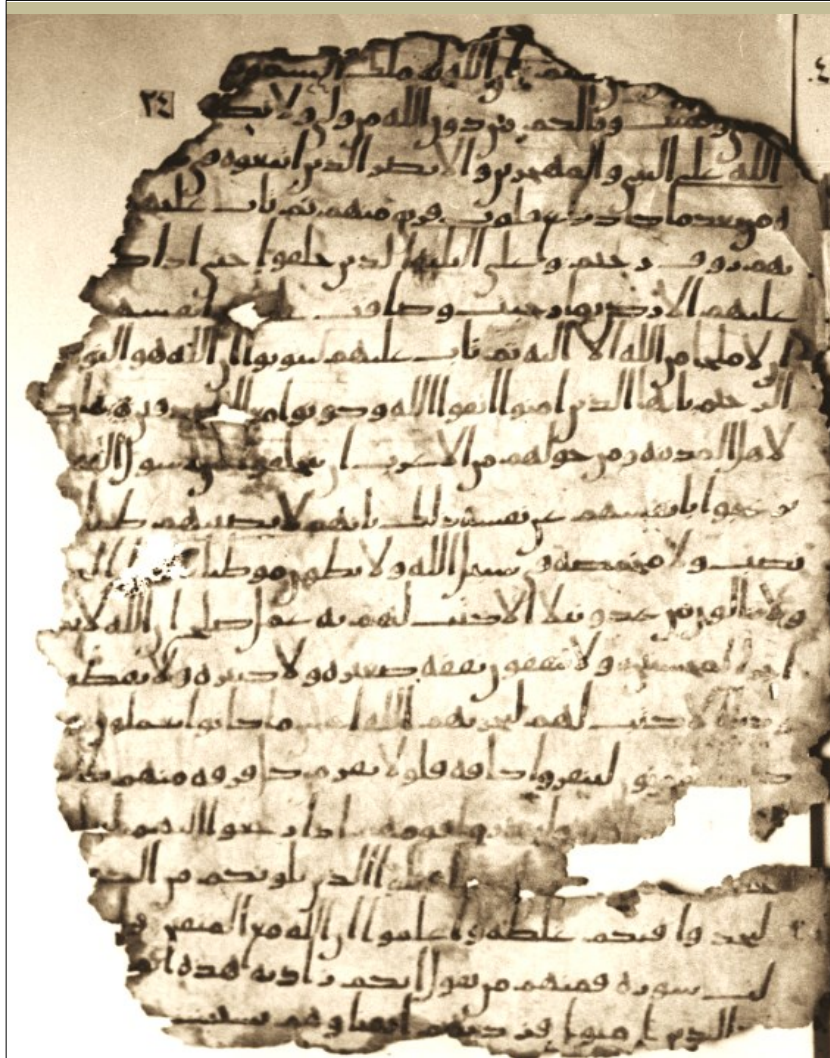 ٢٤
ان الله له ملك السموت
ويميت وما لكم من دون الله من ولي ولا نصير
الله على النبي والمهجرين والانصر الذين اتبعوه في
ه من بعد ما كاد يزيغ قلوب فريق منهم ثم تاب عليهم
بهم روف رحيم وعلى الثلثة الذين خلفوا حتى اذا ضا
عليهم الارض بما رحبت وضاقت انفسهم
ان لا ملجا من الله الا اليه ثم تاب عليهم ليتوبوا ان الله هو التو
الرحيم يايها الذين امنوا اتقوا الله وكونوا مع
لاهل المدينة ومن حولهم من الاعرب ان يتخلفوا عن رسول الله
يرغبوا بانفسهم عن نفسه ذلك بانهم لا يصيبهم ظما
نصب ولا مخمصة في سبيل الله ولا يطون موطيا
ولا ينالون من عدو نيلا الا كتب لهم به عمل صلح ان الله لا يضيع
اجر المحسنين ولا ينفقون نفقة صغيرة ولا كبيرة ولا يقطعو
واديا الا كتب لهم ليجزيهم الله احسن ما كانوا يعملون
لينفروا كافة فلولا نفر من كل فرقة منهم
ولينذروا قومهم اذا رجعوا اليهم
الذين يلونكم من
ليجدوا فيكم غلظة واعلموا ان الله مع المتقين
لت سورة فمنهم من يقول ايكم زادته هذه ا
الذين امنوا فزدتهم ايمنا وهم يستبشر